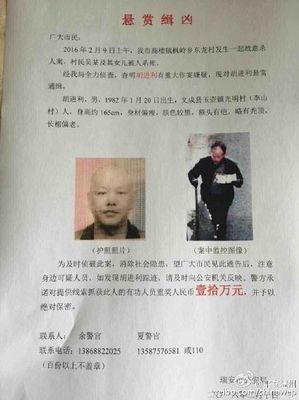 悬赏缉凶
广大市民:
2016年2月9日上午,我市高楼镇枫岭乡东龙村发生一起故意杀
人案,村民吴某及其女儿被人杀死。
经我局全力侦查,查明胡进利有重大作案嫌疑,现对胡进利悬赏
通缉。
胡进利,男,1982年1月20日出生,文成县玉壶镇光明村(李山
村)人,身高约165cm,身材偏瘦,肤色较黑,额头有疤,略有秃顶,
长相偏老。
(护照照片)
(案中监控图像)
为及时侦破此案,消除社会隐患,望广大市民见此通告后,注意
身边可疑人员,如发现胡进利踪迹,请及时向公安机关反映。警方承
诺对提供线索抓获此人的有功人员重奖人民币壹拾万元,并予以
绝对保密。
联系人: 余警官 夏警官
联系电话: 13868822025 13587576581 或110
(百份以上不盖章)
瑞安市公安局